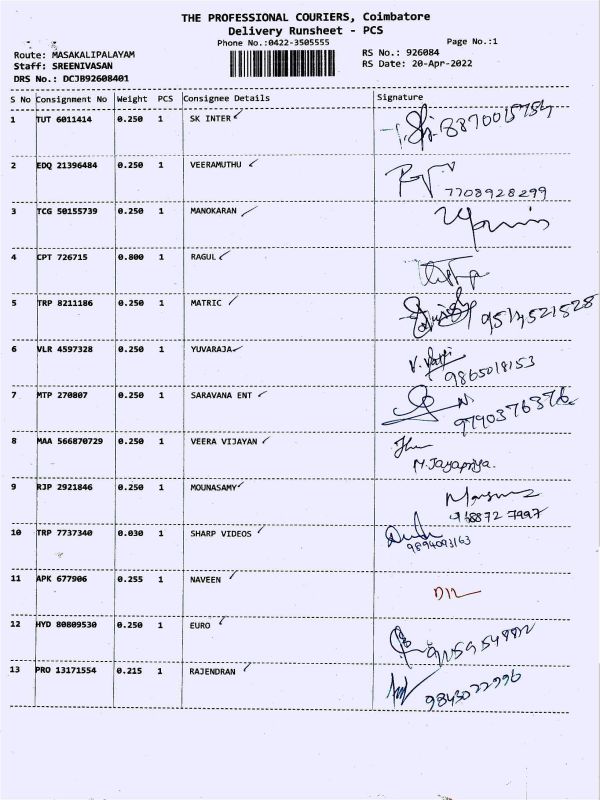 THE PROFESSIONAL COURIERS, Coimbatore
Delivery Runsheet - PCS
Phone No.:0422-3505555
Page No.:1
Route: MASAKALIPALAYAM
Staff: SREENIVASAN
DRS No.: DCJB92608401
RS No.: 926084
RS Date: 20-Apr-2022
S No Consignment No Weight PCS Consignee Details Signature
1 TUT 6011414 0.250 1 SK INTER 8870015754
2 EDQ 21396484 0.250 1 VEERAMUTHU
7708928299
3 TCG 50155739 0.250 1 MANOKARAN
4 CPT 726715 0.800 1 RAGUL
5 TRP 8211186 0.250 1 MATRIC 9514521528
6 VLR 4597328 0.250 1 YUVARAJA
9865018153
7 MTP 270807 0.250 1 SARAVANA ENT
9790376376
8 MAA 566870729 0.250 1 VEERA VIJAYAN
M.Jayapriya.
9 RJP 2921846 0.250 1 MOUNASAMY
10 TRP 7737340 0.030 1 SHARP VIDEOS
9894093163
11 APK 677906 0.255 1 NAVEEN
12 HYD 80809530 0.250 1 EURO
13 PRO 13171554 0.215 1 RAJENDRAN
9843022996